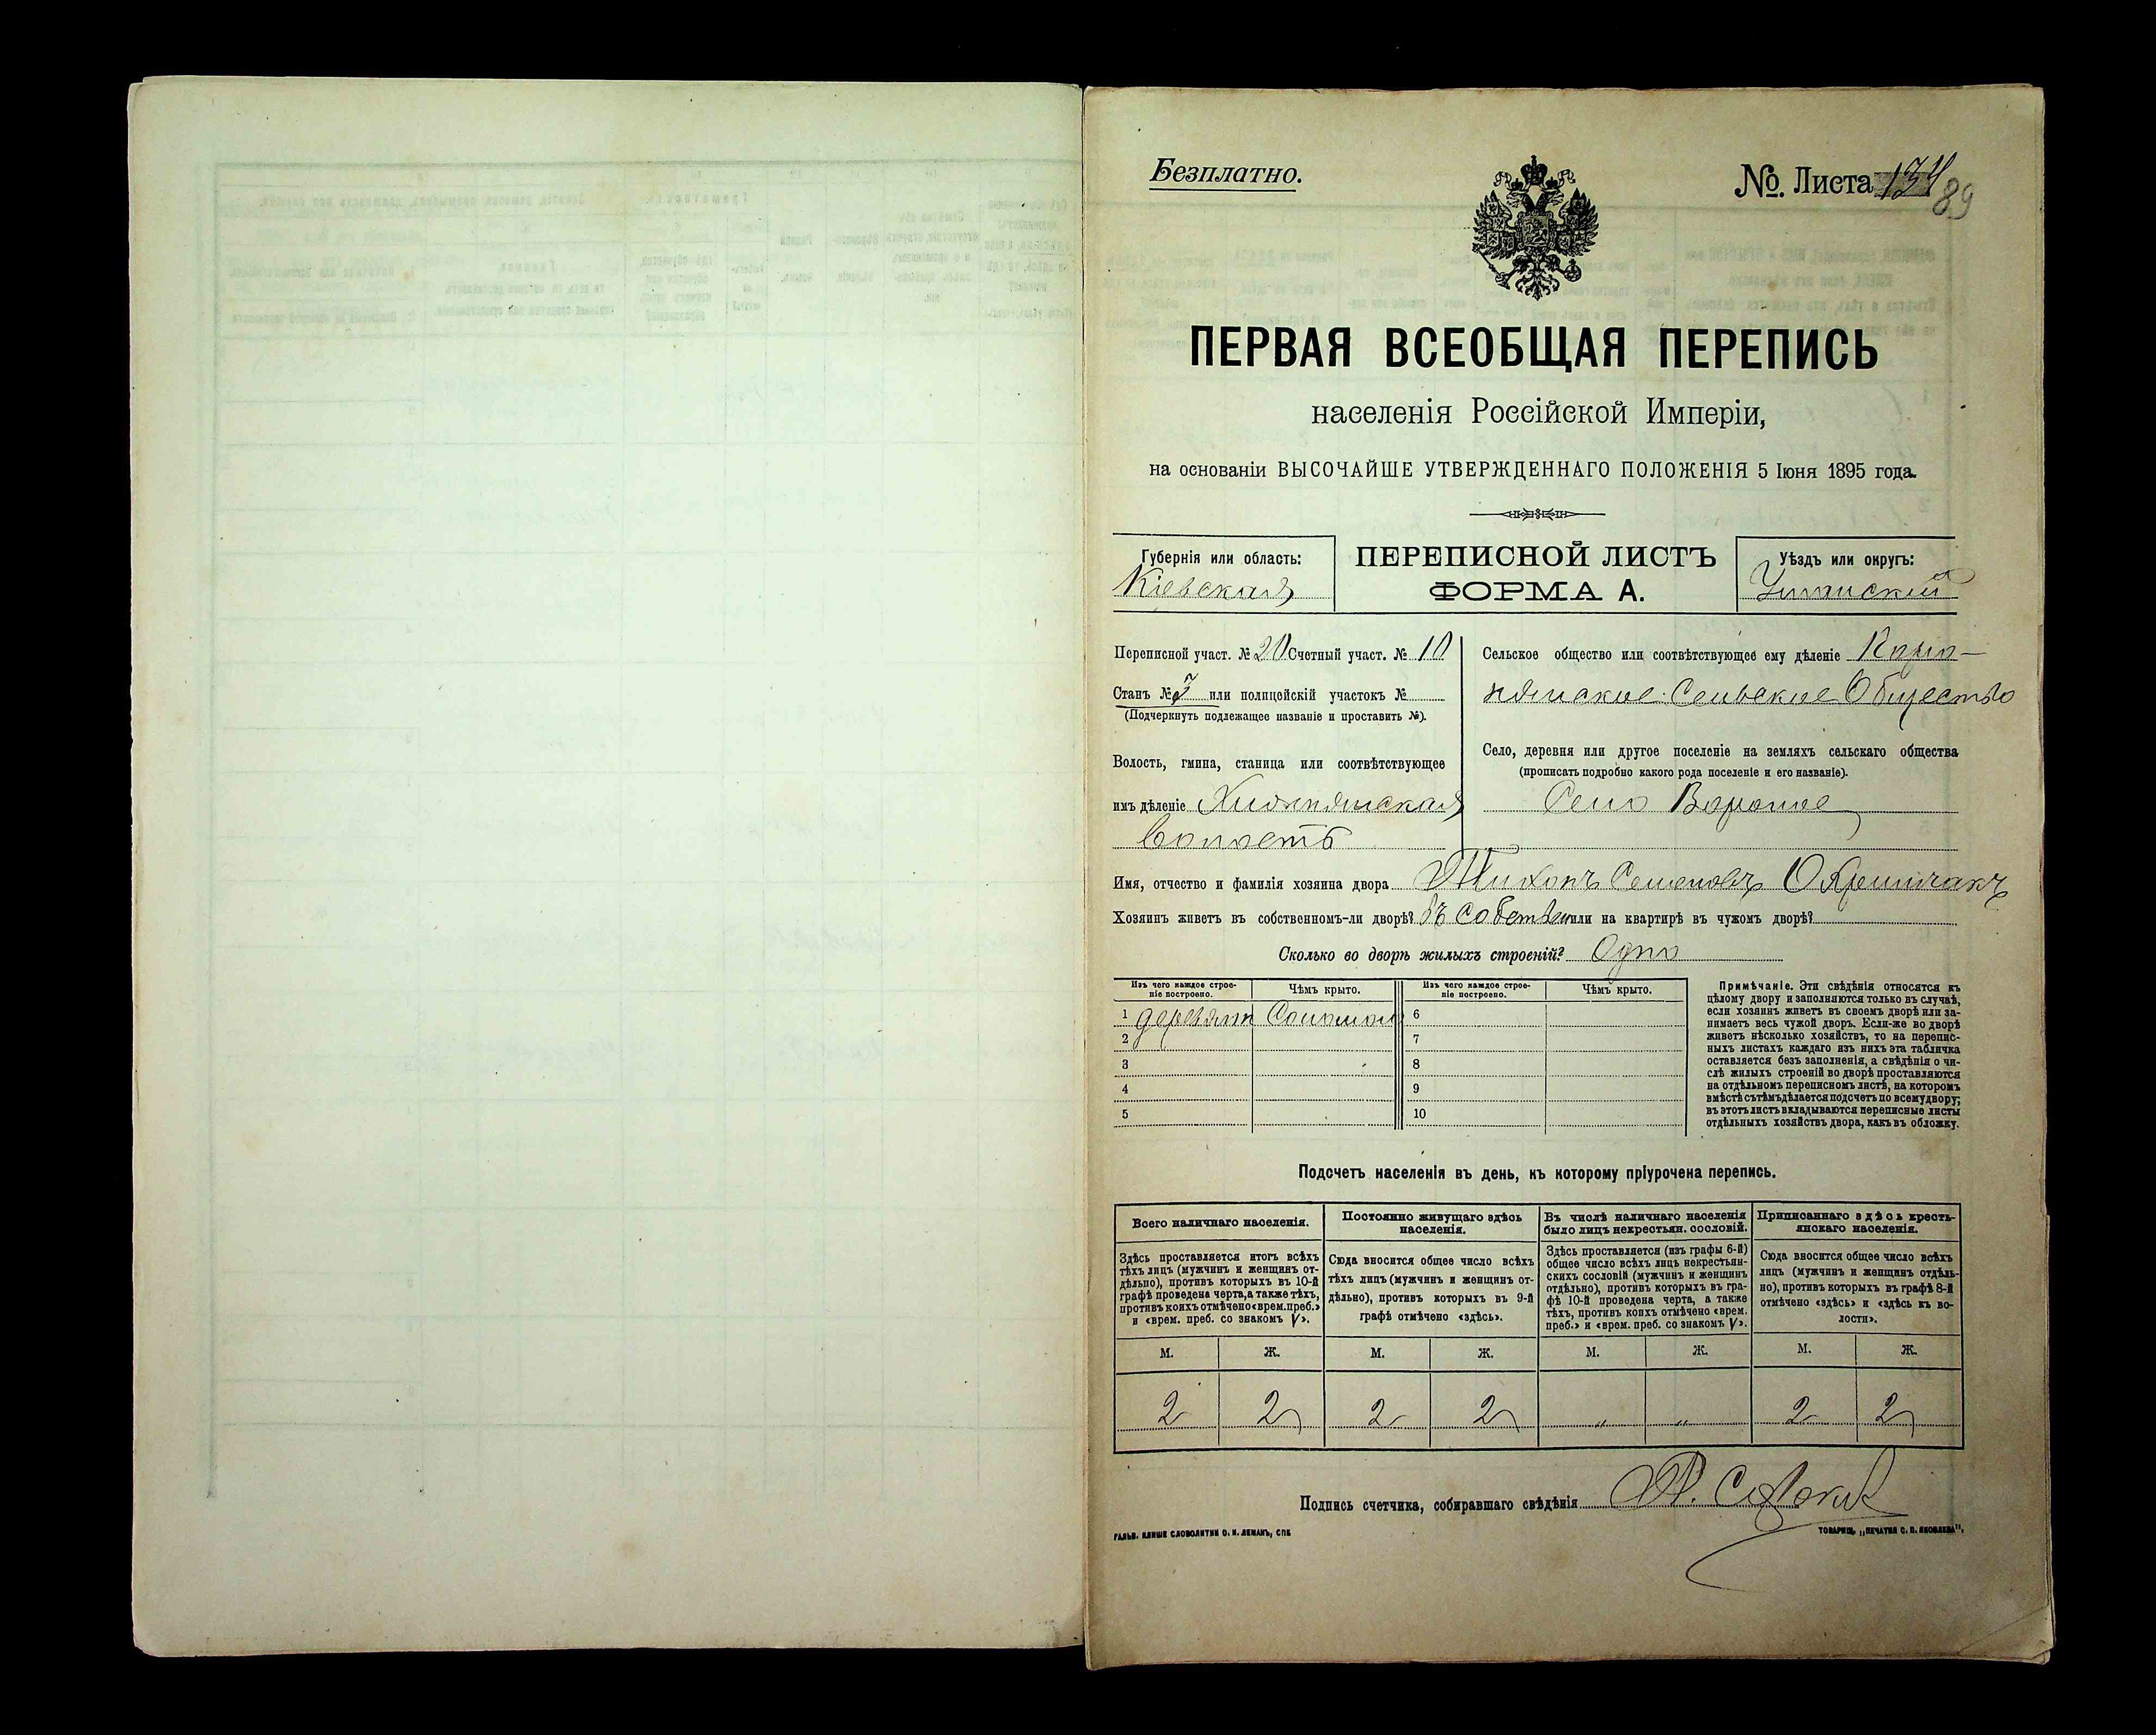 Безплатно.
№ Листа 134
89
ПЕРВАЯ ВСЕОБЩАЯ ПЕРЕПИСЬ
населенія Россійской Имперіи,
на основаніи ВЫСОЧАЙШЕ УТВЕРЖДЕННАГО ПОЛОЖЕНІЯ 5 Іюня 1895 года.
Губернія или область:
Кіевская
ПЕРЕПИСНОЙ ЛИСТЪ
ФОРМА А.
Уѣздъ или округъ:
Уманскій
Переписной участ. № 20 Счетный участ. № 10
Станъ № или полицейскій участокъ №
(Подчеркнуть подлежащее названіе и проставить №).
Волость, гмина, станица или соотвѣтствующее
имъ дѣленіе
Волость
Сельское общество или соотвѣтствующее ему дѣленіе
Сельское Общество
Село, деревня или другое поселеніе на земляхъ сельскаго общества
(прописать подробно какого рода поселеніе и его названіе).
Село Вороное
Имя, отчество и фамилія хозяина двора Тихонъ Семеновъ
Хозяинъ живетъ въ собственномъ-ли дворѣ? въ собствен или на квартирѣ въ чужомъ дворѣ?
Сколько во дворѣ жилыхъ строеній? Одно
Изъ чего каждое строе-
ніе построено.
Чѣмъ крыто.
Изъ чего каждое строе-
ніе построено.
Чѣмъ крыто.
1 деревян Соломой 6
2 7
3 8
4 9
5 10
Примѣчаніе. Эти свѣдѣнія относятся къ
цѣлому двору и заполняются только въ случаѣ,
если хозяинъ живетъ въ своемъ дворѣ или за-
нимаетъ весь чужой дворъ. Если-же во дворѣ
живетъ нѣсколько хозяйствъ, то на перепис-
ныхъ листахъ каждаго изъ нихъ эта табличка
оставляется безъ заполненія, а свѣдѣнія о чи-
слѣ жилыхъ строеній во дворѣ проставляются
на отдѣльномъ переписномъ листѣ, на которомъ
вмѣстѣ съ тѣмъ дѣлается подсчетъ по всему двору;
въ этотъ листъ вкладываются переписные листы
отдѣльныхъ хозяйствъ двора, какъ въ обложку.
Подсчетъ населенія въ день, къ которому пріурочена перепись.
Всего наличнаго населенія.
Здѣсь проставляется итогъ всѣхъ
тѣхъ лицъ (мужчинъ и женщинъ от-
дѣльно), противъ которыхъ въ 10-й
графѣ проведена черта, а также тѣхъ,
противъ коихъ отмѣчено «врем. преб.»
и «врем. преб. со знакомъ V».
Постоянно живущаго здѣсь
населенія.
Сюда вносится общее число всѣхъ
тѣхъ лицъ (мужчинъ и женщинъ от-
дѣльно), противъ которыхъ въ 9-й
графѣ отмѣчено «здѣсь».
Въ числѣ наличнаго населенія
было лицъ некрестьян. сословій.
Здѣсь проставляется (изъ графы 6-й)
общее число всѣхъ лицъ некрестьян-
скихъ сословій (мужчинъ и женщинъ
отдѣльно), противъ которыхъ въ гра-
фѣ 10-й проведена черта, а также
тѣхъ, противъ коихъ отмѣчено «врем.
преб.» и «врем. преб. со знакомъ V».
Приписаннаго здѣсь кресть-
янскаго населенія.
Сюда вносится общее число всѣхъ
лицъ (мужчинъ и женщинъ отдѣль-
но), противъ которыхъ въ графѣ 8-й
отмѣчено «здѣсь» и «здѣсь къ во-
лости».
М. Ж. М. Ж. М. Ж. М. Ж.
2 2 2 2 " " 2 2
Подпись счетчика, собиравшаго свѣдѣнія
ГАЛЬВ. КЛИШЕ СЛОВОЛИТНИ О. И. ЛЕМАНЪ, СПБ
ТОВАРИЩ. „ПЕЧАТНЯ С. П. ЯКОВЛЕВА".